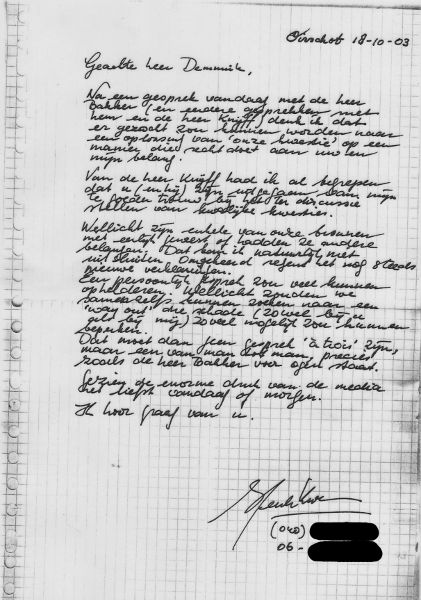 Oirschot 18-10-03
Geachte heer Demmink,
Na een gesprek vandaag met de heer
Bakker (en eerdere gesprekken met
hem en de heer Kuijff) denk ik dat
er gezocht zou kunnen worden naar
een oplossing van 'onze kwestie' op een
manier die recht doet aan uw en
mijn belang.
Van de heer Kuijff had ik al begrepen
dat u (en hij) zijn van mijn
te goeder trouw bij het ter discussie
stellen van kwestie.
Wellicht zijn enkele van onze bronnen
niet eerlijk geweest of hadden ze andere
belangen. Dat kan ik natuurlijk niet
uitsluiten. Omgekeerd regent het nog steeds
nieuwe verklaringen.
Een persoonlijk gesprek zou veel kunnen
ophelderen. Wellicht zouden we
samen zelfs kunnen zoeken naar een
'way out' die schade (zowel bij u
als bij mij) zoveel mogelijk zou kunnen
beperken.
Dat moet dan geen gesprek 'à trois' zijn,
maar een van man tot man, precies
zoals de heer Bakker voor ogen staat.
Gezien de enorme druk van de media
het liefst vandaag of morgen.
Ik hoor graag van u.
(040)
06-